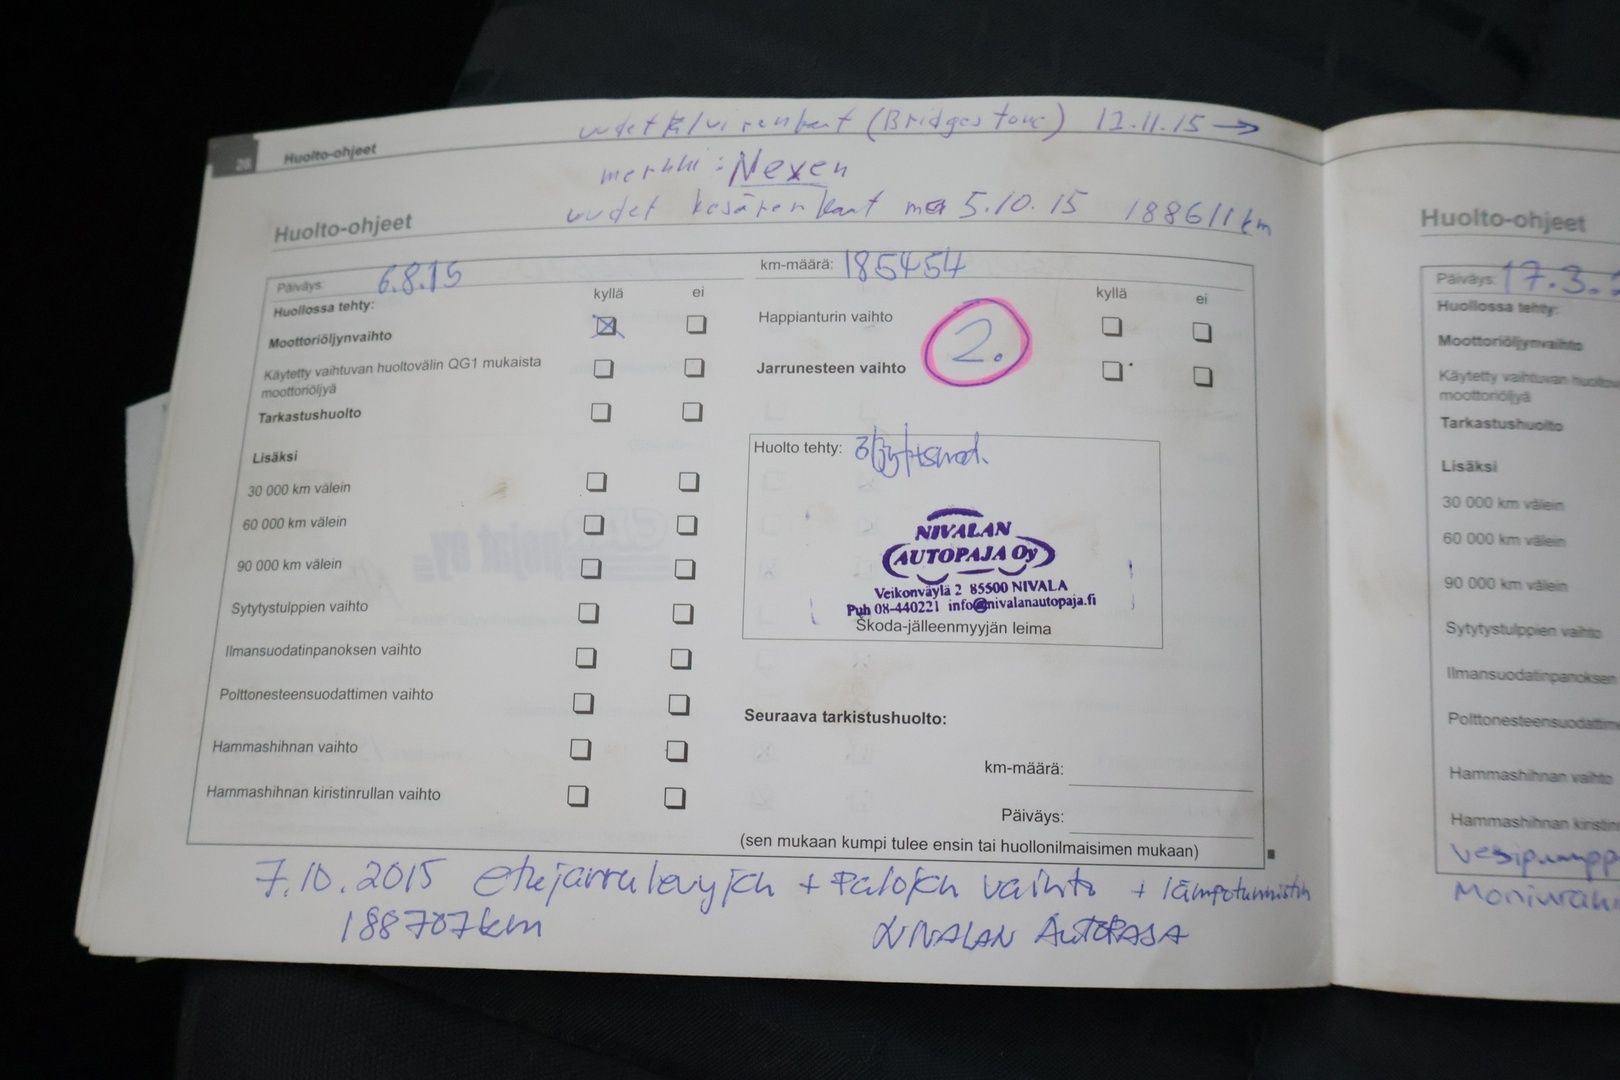 uudet talvirenkaat (Bridgestone) 12.11.15 →
28 Huolto-ohjeet
merkki: Nexen
uudet kesärenkaat 5.10.15 188611 km
Huolto-ohjeet
Päiväys: 6.8.15 km-määrä: 185454
Huollossa tehty: kyllä ei kyllä ei
Moottoriöljynvaihto Happianturin vaihto
2.
Käytetty vaihtuvan huoltovälin QG1 mukaista
moottoriöljyä
Jarrunesteen vaihto
Tarkastushuolto
Lisäksi
30 000 km välein
60 000 km välein
90 000 km välein
Sytytystulppien vaihto
Ilmansuodatinpanoksen vaihto
Polttonesteensuodattimen vaihto
Hammashihnan vaihto
Hammashihnan kiristinrullan vaihto
Huolto tehty:
NIVALAN
AUTOPAJA Oy
Veikonväylä 2 85500 NIVALA
Puh 08-440221 info@nivalanautopaja.fi
Škoda-jälleenmyyjän leima
Seuraava tarkistushuolto:
km-määrä:
Päiväys:
(sen mukaan kumpi tulee ensin tai huollonilmaisimen mukaan)
7.10.2015 etujarrulevyjen + palojen vaihto + lämpötunnistin
188707km NIVALAN AUTOPAJA
Huolto-ohjeet
Päiväys: 17.3.
Huollossa tehty:
Moottoriöljynvaihto
Käytetty vaihtuvan
moottoriöljyä
Tarkastushuolto
Lisäksi
30 000 km välein
60 000 km välein
90 000 km välein
Sytytystulppien vaihto
Ilmansuodatinpanoksen
Hammashihnan vaihto
Hammashihnan